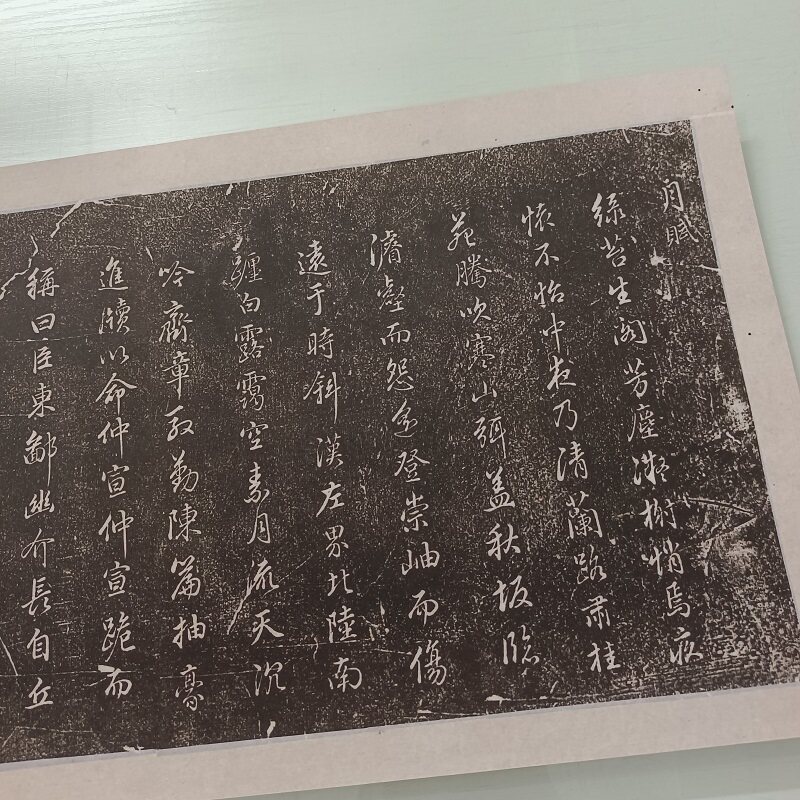 月賦
綠苔生閣芳塵凝榭悄焉疚
懷不怡中夜乃清蘭路肅桂
苑騰吹寒山弭蓋秋坂臨
濬壑而怨遙登崇岫而傷
遠于時斜漢左界北陸南
躔白露靄空素月流天沉
吟齊章殷勤陳篇抽毫
進牘以命仲宣仲宣跪而
稱曰臣東鄙幽介長自丘